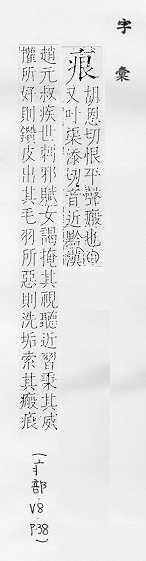 字彙
痕
胡恩切恨平聲瘢也
又叶渠添切音近黔漢
趙元叔疾世刺邪賦女謁掩其視聽近習秉其威
權所好則鑽皮出其毛羽所惡則洗垢索其瘢痕
(疒部.V8 P.38)